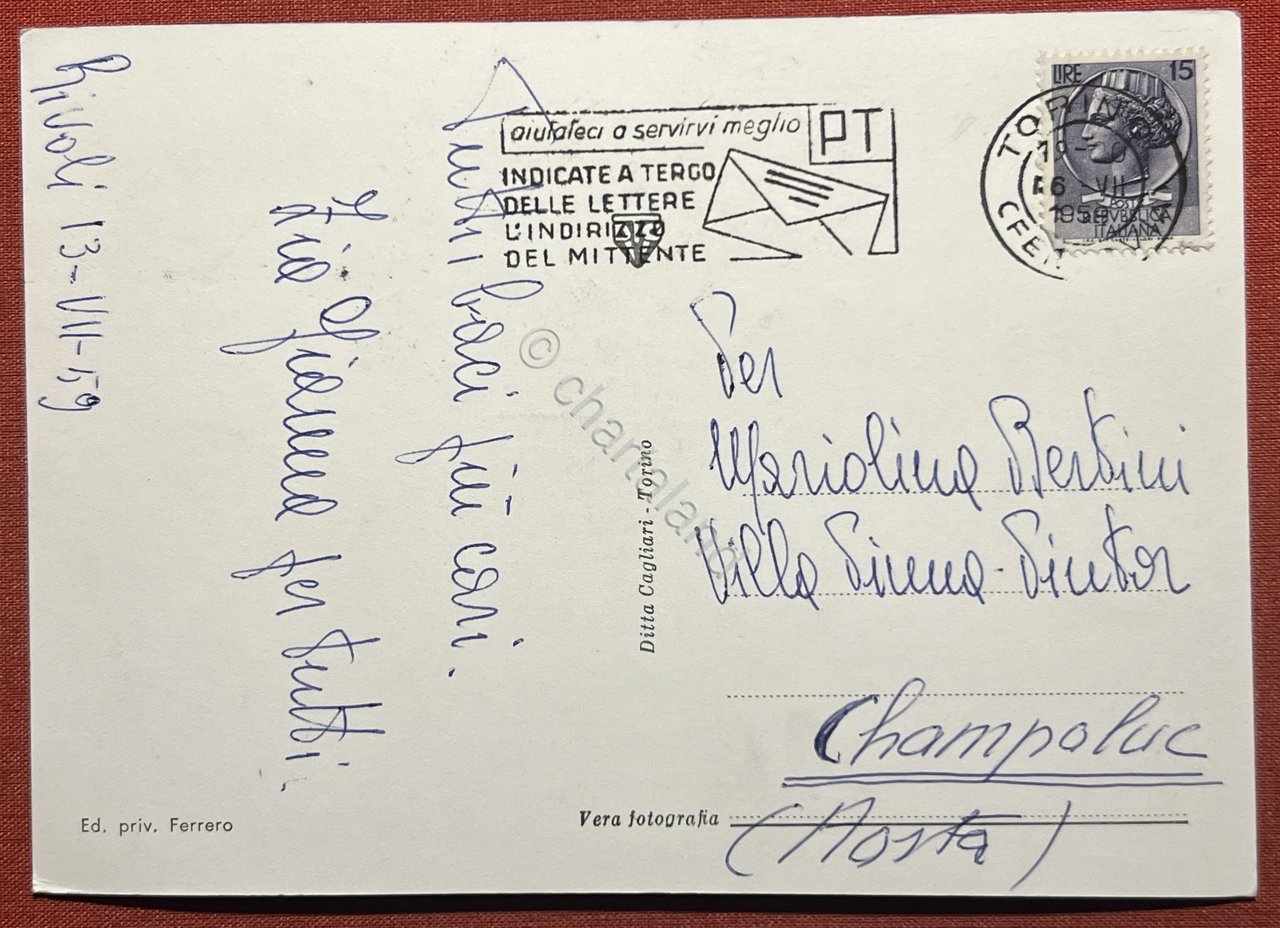 Rivoli 13-VII-59
Tanti baci più cari.
Zia Gianna per tutti.
aiutateci a servirvi meglio
PT
INDICATE A TERGO
DELLE LETTERE
L'INDIRIZZO
DEL MITTENTE
TORINO
19
6 VII
1959
CFER
LIRE 15
POSTE
REPVBBLICA
ITALIANA
Per
Mariolina Bertini
Villa Pinna-Pintor
Champoluc
(Aosta)
Ditta Cagliari - Torino
Vera fotografia
Ed. priv. Ferrero
© chartaland